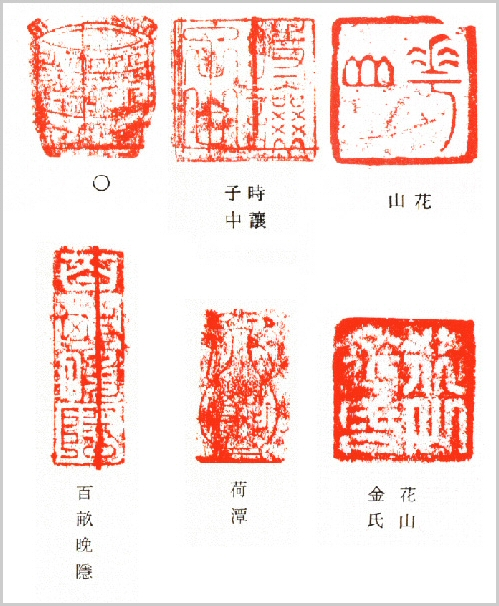 花山
時讓
子中
○
花山
金氏
荷潭
百畝晩隱